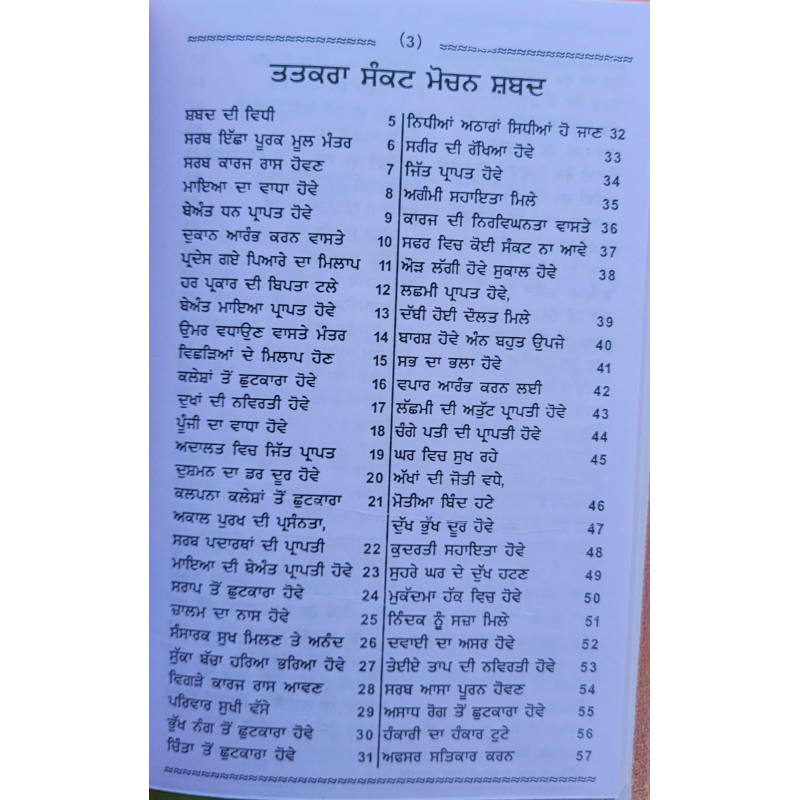 (3)
ਤਤਕਰਾ ਸੰਕਟ ਮੋਚਨ ਸ਼ਬਦ
ਸ਼ਬਦ ਦੀ ਵਿਧੀ 5
ਸਰਬ ਇੱਛਾ ਪੂਰਕ ਮੂਲ ਮੰਤਰ 6
ਸਰਬ ਕਾਰਜ ਰਾਸ ਹੋਵਣ 7
ਮਾਇਆ ਦਾ ਵਾਧਾ ਹੋਵੇ 8
ਬੇਅੰਤ ਧਨ ਪ੍ਰਾਪਤ ਹੋਵੇ 9
ਦੁਕਾਨ ਆਰੰਭ ਕਰਨ ਵਾਸਤੇ 10
ਪ੍ਰਦੇਸ ਗਏ ਪਿਆਰੇ ਦਾ ਮਿਲਾਪ 11
ਹਰ ਪ੍ਰਕਾਰ ਦੀ ਬਿਪਤਾ ਟਲੇ 12
ਬੇਅੰਤ ਮਾਇਆ ਪ੍ਰਾਪਤ ਹੋਵੇ 13
ਉਮਰ ਵਧਾਉਣ ਵਾਸਤੇ ਮੰਤਰ 14
ਵਿਛੜਿਆਂ ਦੇ ਮਿਲਾਪ ਹੋਣ 15
ਕਲੇਸ਼ਾਂ ਤੋਂ ਛੁਟਕਾਰਾ ਹੋਵੇ 16
ਦੁਖਾਂ ਦੀ ਨਵਿਰਤੀ ਹੋਵੇ 17
ਪੂੰਜੀ ਦਾ ਵਾਧਾ ਹੋਵੇ 18
ਅਦਾਲਤ ਵਿਚ ਜਿੱਤ ਪ੍ਰਾਪਤ 19
ਦੁਸ਼ਮਨ ਦਾ ਡਰ ਦੂਰ ਹੋਵੇ 20
ਕਲਪਨਾ ਕਲੇਸ਼ਾਂ ਤੋਂ ਛੁਟਕਾਰਾ 21
ਅਕਾਲ ਪੁਰਖ ਦੀ ਪ੍ਰਸੰਨਤਾ,
ਸਰਬ ਪਦਾਰਥਾਂ ਦੀ ਪ੍ਰਾਪਤੀ 22
ਮਾਇਆ ਦੀ ਬੇਅੰਤ ਪ੍ਰਾਪਤੀ ਹੋਵੇ 23
ਸਰਾਪ ਤੋਂ ਛੁਟਕਾਰਾ ਹੋਵੇ 24
ਜ਼ਾਲਮ ਦਾ ਨਾਸ ਹੋਵੇ 25
ਸੰਸਾਰਕ ਸੁਖ ਮਿਲਣ ਤੇ ਅਨੰਦ 26
ਸੁੱਕਾ ਬੱਚਾ ਹਰਿਆ ਭਰਿਆ ਹੋਵੇ 27
ਵਿਗੜੇ ਕਾਰਜ ਰਾਸ ਆਵਣ 28
ਪਰਿਵਾਰ ਸੁਖੀ ਵੱਸੇ 29
ਭੁੱਖ ਨੰਗ ਤੋਂ ਛੁਟਕਾਰਾ ਹੋਵੇ 30
ਚਿੰਤਾ ਤੋਂ ਛੁਟਕਾਰਾ ਹੋਵੇ 31
ਨਿਧੀਆਂ ਅਠਾਰਾਂ ਸਿਧੀਆਂ ਹੋ ਜਾਣ 32
ਸਰੀਰ ਦੀ ਰੱਖਿਆ ਹੋਵੇ 33
ਜਿੱਤ ਪ੍ਰਾਪਤ ਹੋਵੇ 34
ਅਗੰਮੀ ਸਹਾਇਤਾ ਮਿਲੇ 35
ਕਾਰਜ ਦੀ ਨਿਰਵਿਘਨਤਾ ਵਾਸਤੇ 36
ਸਫਰ ਵਿਚ ਕੋਈ ਸੰਕਟ ਨਾ ਆਵੇ 37
ਔੜ ਲੱਗੀ ਹੋਵੇ ਸੁਕਾਲ ਹੋਵੇ 38
ਲਛਮੀ ਪ੍ਰਾਪਤ ਹੋਵੇ,
ਦੱਬੀ ਹੋਈ ਦੌਲਤ ਮਿਲੇ 39
ਬਾਰਸ਼ ਹੋਵੇ ਅੰਨ ਬਹੁਤ ਉਪਜੇ 40
ਸਭ ਦਾ ਭਲਾ ਹੋਵੇ 41
ਵਪਾਰ ਆਰੰਭ ਕਰਨ ਲਈ 42
ਲੱਛਮੀ ਦੀ ਅਤੁੱਟ ਪ੍ਰਾਪਤੀ ਹੋਵੇ 43
ਚੰਗੇ ਪਤੀ ਦੀ ਪ੍ਰਾਪਤੀ ਹੋਵੇ 44
ਘਰ ਵਿਚ ਸੁਖ ਰਹੇ 45
ਅੱਖਾਂ ਦੀ ਜੋਤੀ ਵਧੇ,
ਮੋਤੀਆ ਬਿੰਦ ਹਟੇ 46
ਦੁੱਖ ਭੁੱਖ ਦੂਰ ਹੋਵੇ 47
ਕੁਦਰਤੀ ਸਹਾਇਤਾ ਹੋਵੇ 48
ਸੁਹਰੇ ਘਰ ਦੇ ਦੁੱਖ ਹਟਣ 49
ਮੁਕੱਦਮਾ ਹੱਕ ਵਿਚ ਹੋਵੇ 50
ਨਿੰਦਕ ਨੂੰ ਸਜ਼ਾ ਮਿਲੇ 51
ਦਵਾਈ ਦਾ ਅਸਰ ਹੋਵੇ 52
ਤੇਈਏ ਤਾਪ ਦੀ ਨਵਿਰਤੀ ਹੋਵੇ 53
ਸਰਬ ਆਸਾ ਪੂਰਨ ਹੋਵਣ 54
ਅਸਾਧ ਰੋਗ ਤੋਂ ਛੁਟਕਾਰਾ ਹੋਵੇ 55
ਹੰਕਾਰੀ ਦਾ ਹੰਕਾਰ ਟੁਟੇ 56
ਅਫਸਰ ਸਤਿਕਾਰ ਕਰਨ 57